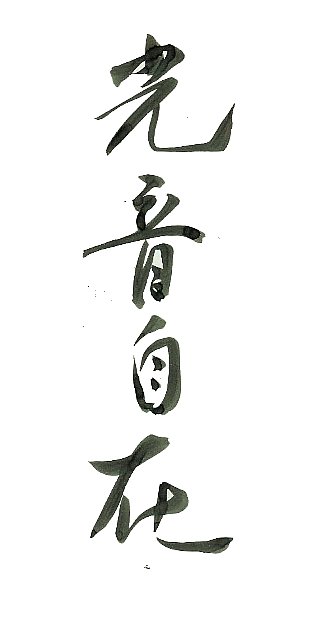 光音自在